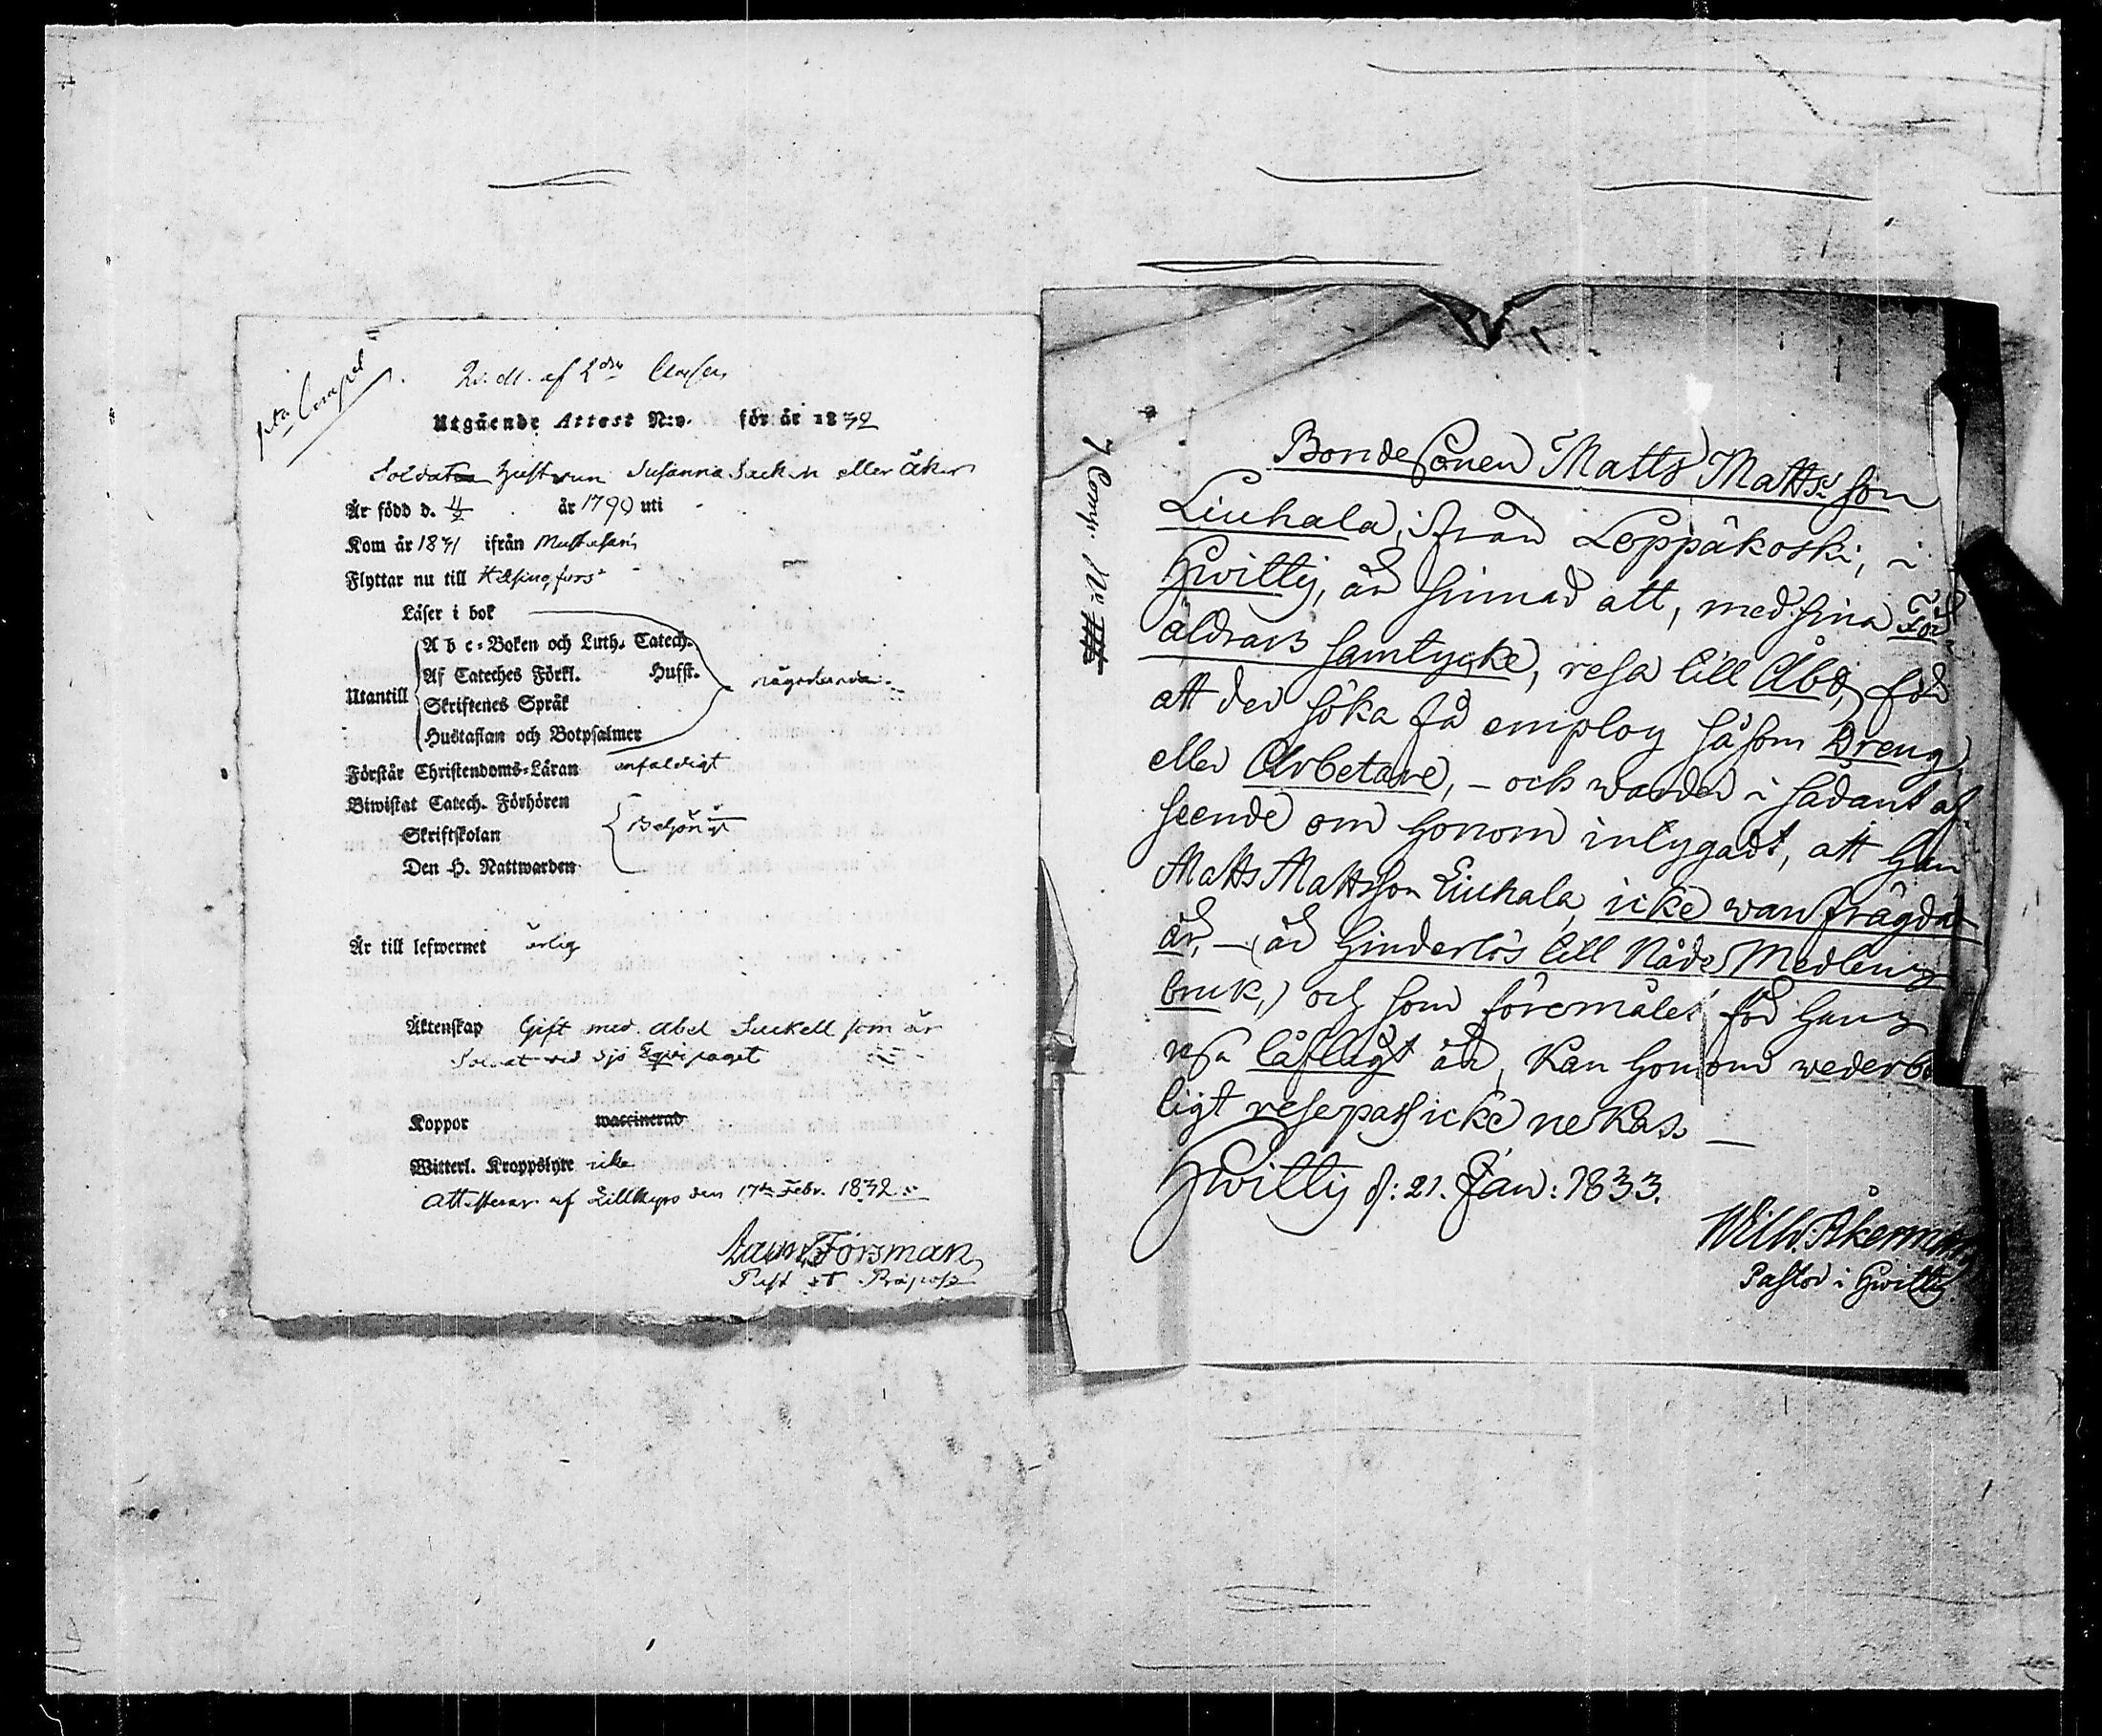 Utgående Attest N:o. för år 1832
Soldat Hustrun Susanna eller Åker
Är född d. år 1790 uti
Kom år 1831 ifrån
Flyttar nu till Helsingfors
Läser i bok
Utantill
A b c-Boken och Luth. Catech.
Af Cateches Förkl. Husst.
Skriftenes Språk
Hustaflan och Botpsalmer
någorlunda
Förstår Christendoms-Läran enfaldigt
Biwistat Catech. Förhören
Skriftskolan
Den H. Nattwarden
Är till lefwernet ärlig
Äktenskap Gift med Abel som är
Soldat vid Sjö Equipaget
Koppor waccinerad
Witterl. Kroppslyte icke
Attesterar af Lillkyro den 17de Febr. 1832
Forsman
Past et Præpos
7 Comp. No
BondeSonen Matts Mattsson
Liuhala, ifrån Loppäkoski, i
Hwittis, är sinnad att, med sina För-
äldrars samtycke, resa till Åbo, för
att der söka få employ såsom Dreng
eller Arbetare, - och warder i sådant af-
seende om honom intygadt, att han
Matts Mattsson Liuhala, icke wanfrägdad
är, - (är hinderlös till Nåde Medlens
bruk,) och som föremålet för hans
resa låfligt är, kan honom wederbör-
ligt resepass icke nekas
Hwittis d: 21. Jan: 1833.
Wilh. Åkerman
Pastor i Hwittis